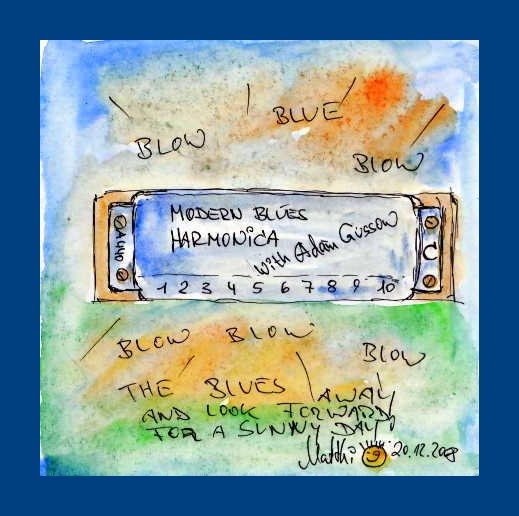 BLOW BLUE BLOW
MODERN BLUES
HARMONICA
with Adam Gussow
A440
C
1 2 3 4 5 6 7 8 9 10
BLOW BLOW BLOW
THE BLUES AWAY
AND LOOK FORWARD,
FOR A SUNNY DAY!
Matthi 20.12.2008